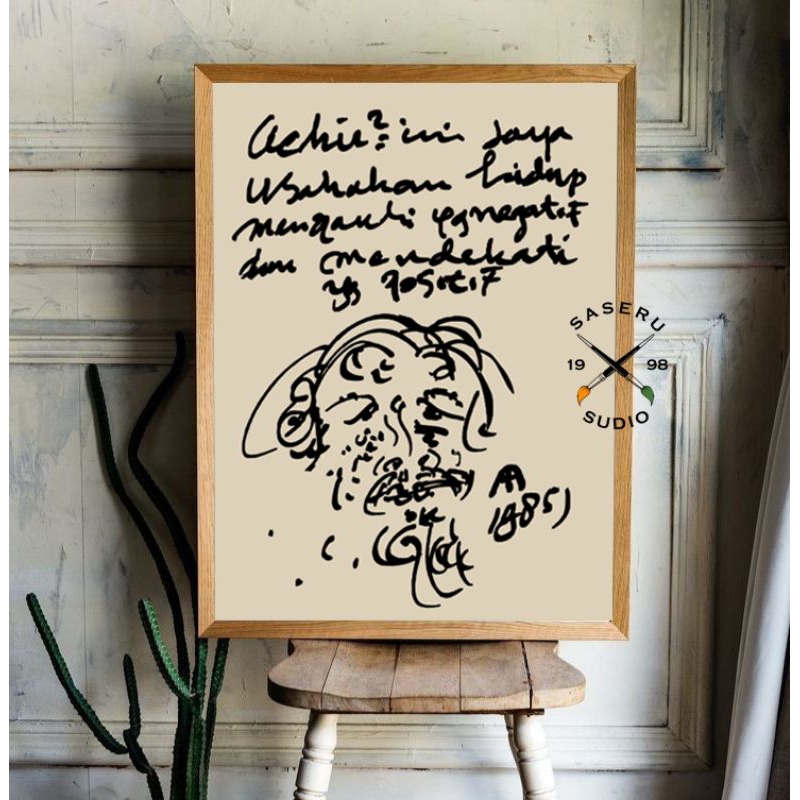 Achir² ini saya
Usahakan hidup
menjauhi yg negatif
dan mendekati
yg positif
1985)
SASERU
19 98
SUDIO